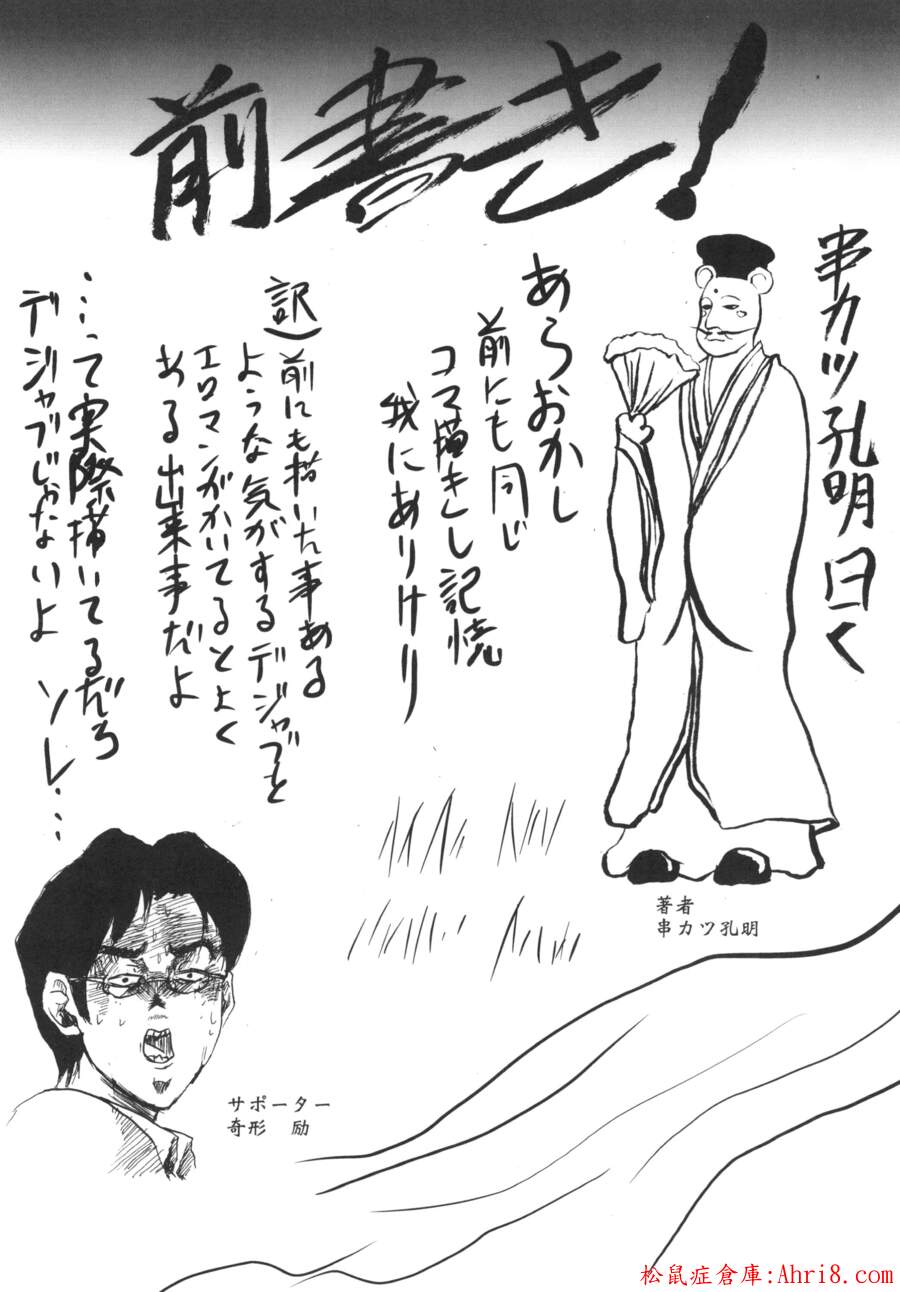 前書き！
串カツ孔明曰く
あらおかし
前にも同じ
コマ描きし記憶
我にありけり
訳)前にも描いた事ある
ような気がするデジャブと
エロマンガかいてるとよく
ある出来事だよ
・・・って実際描いてるだろ
デジャブじゃないよソレ・・・
著者
串カツ孔明
サポーター
奇形 励
松鼠症倉庫:Ahri8.com